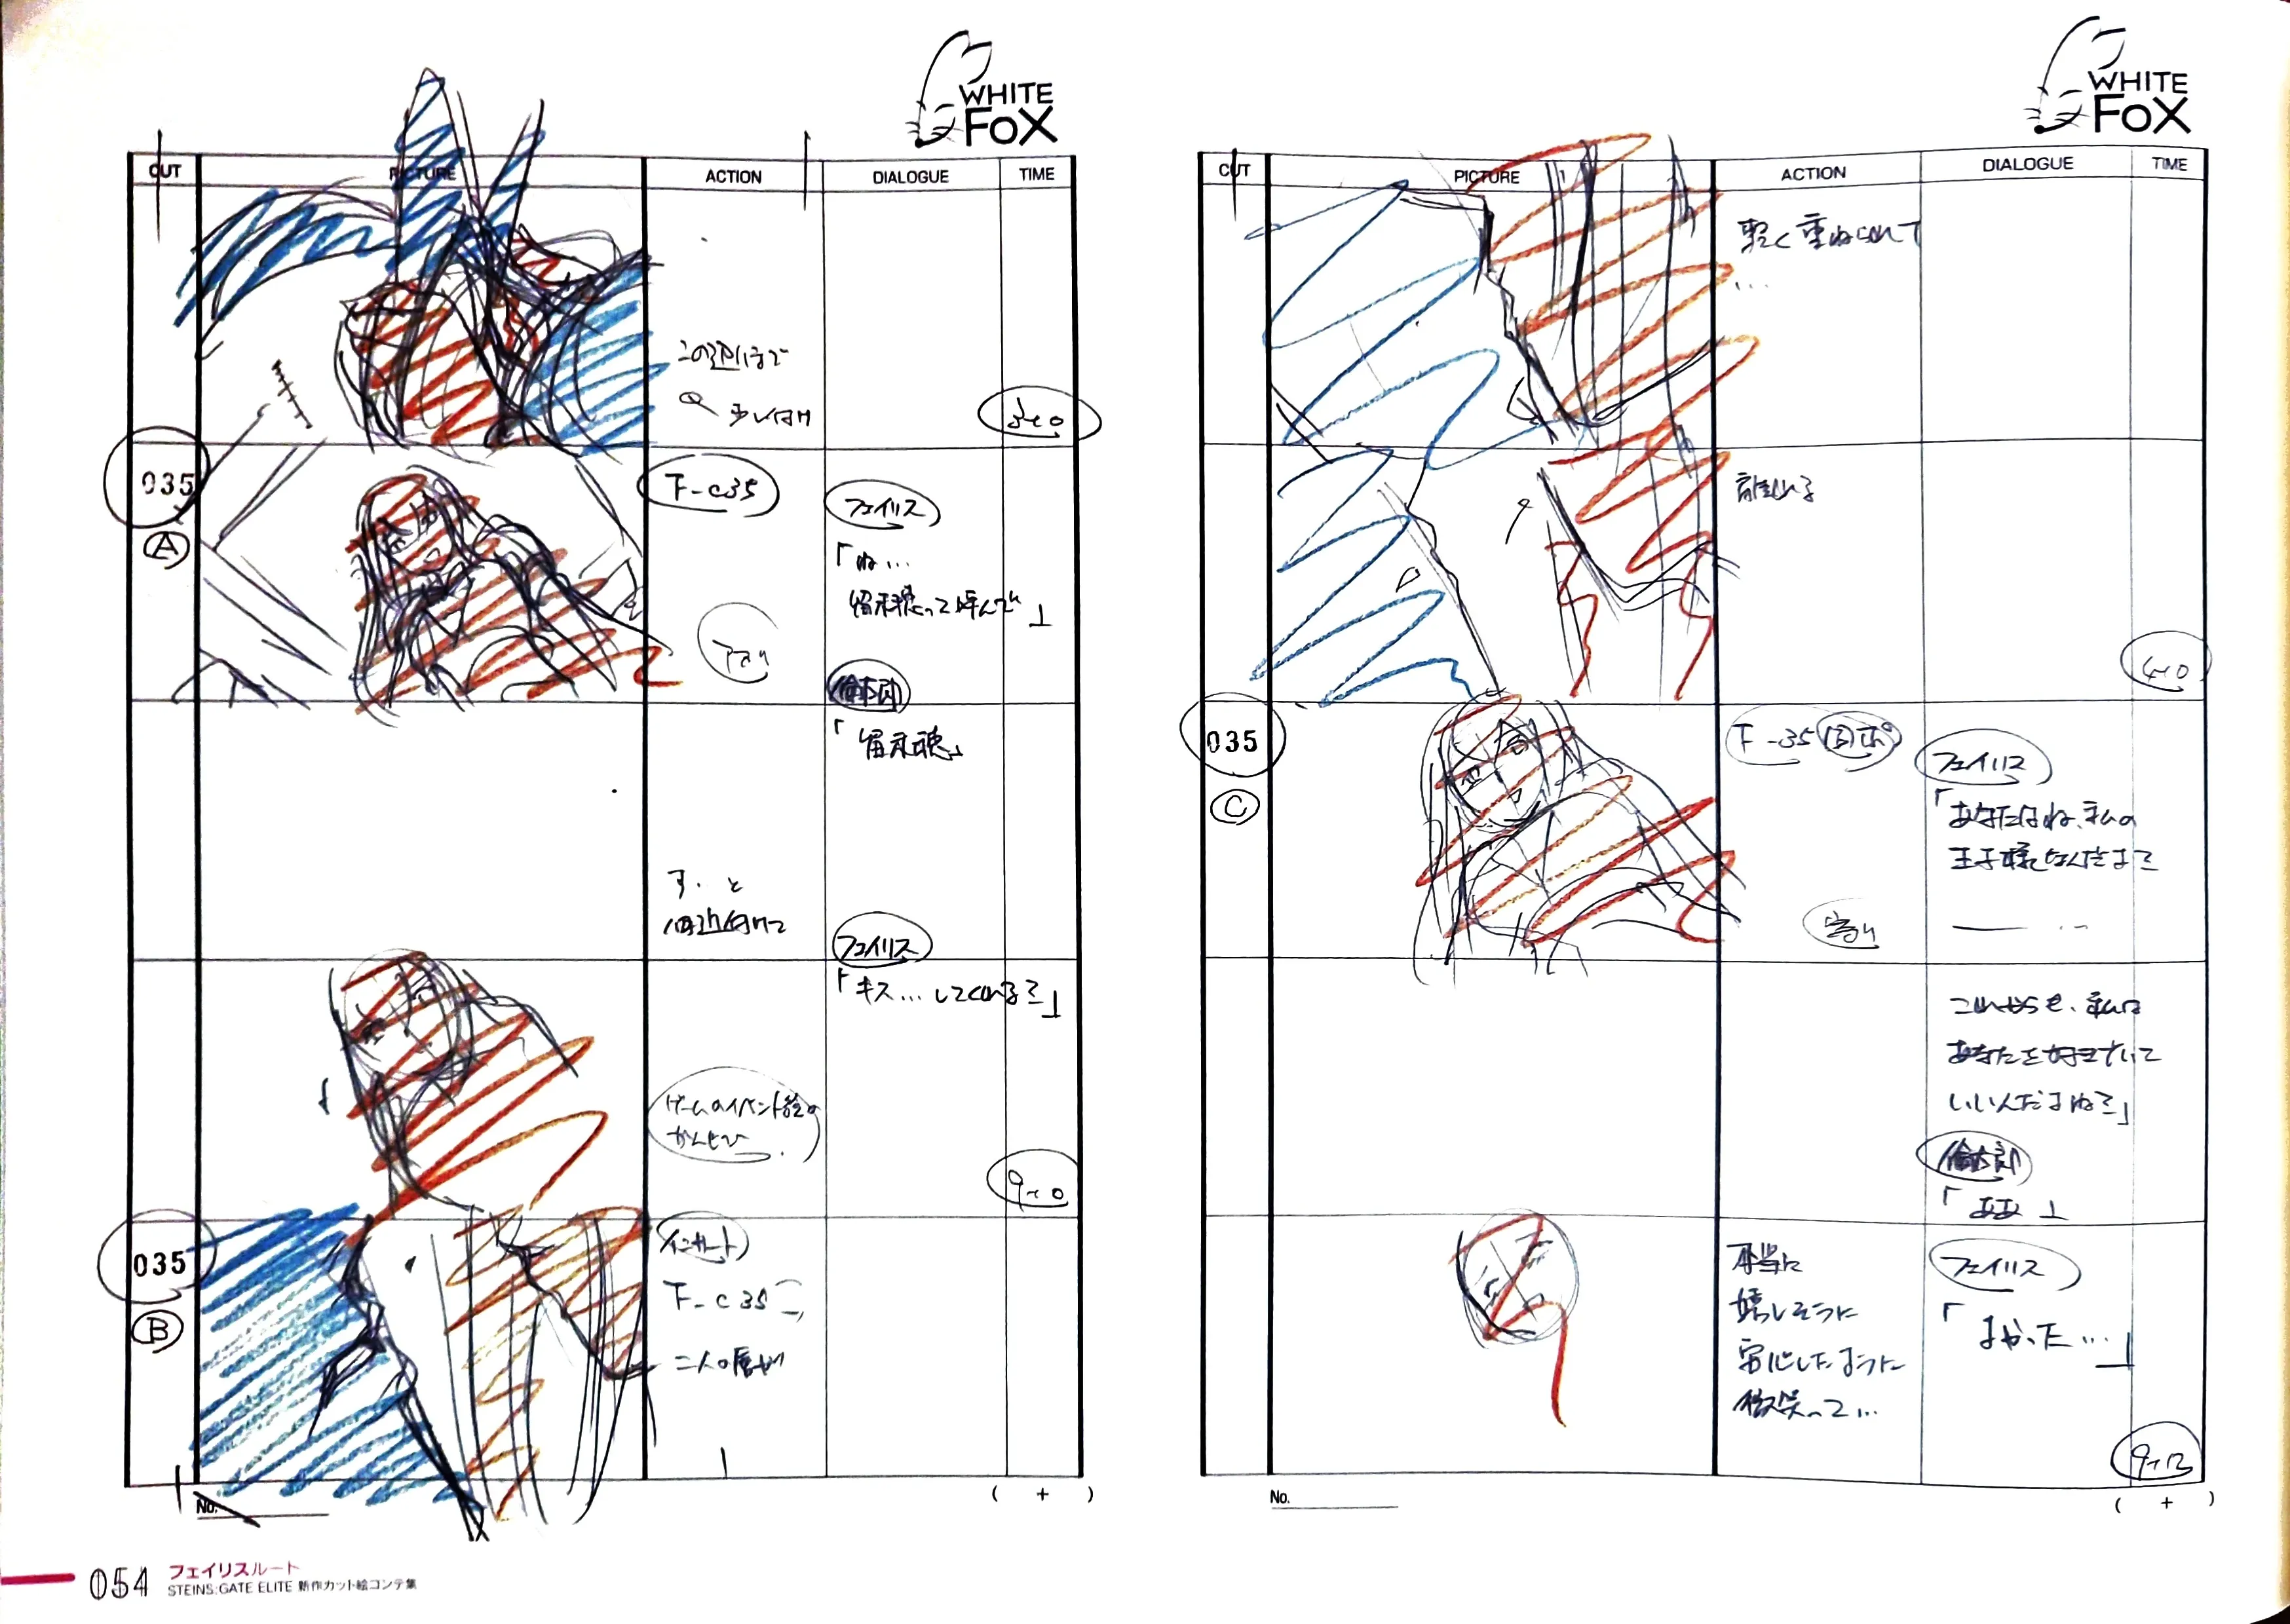 WHITE
FOX
CUT
PICTURE
ACTION
DIALOGUE
TIME
3+0
035
A
F-c35
フェイリス
「ね…
留未穂って呼んで」
アオリ
倫太郎
「留未穂」
フェイリス
「キス…してくれる?」
ゲームのイベント絵の
9+0
035
B
インサート
F-c35
二人の唇が
No.
( + )
WHITE
FOX
CUT
PICTURE
ACTION
DIALOGUE
TIME
軽く重ねられて
…
離れる
4+0
035
C
F-35
フェイリス
「あなたはね、私の
王子様なんだよ?
寄り
これからも、私は
あなたを好きでいて
いいんだよね?」
倫太郎
「ああ」
本当に
嬉しそうに
安心したように
微笑って…
フェイリス
「よかった…」
9+12
No.
( + )
054
フェイリスルート
STEINS;GATE ELITE 新作カット絵コンテ集